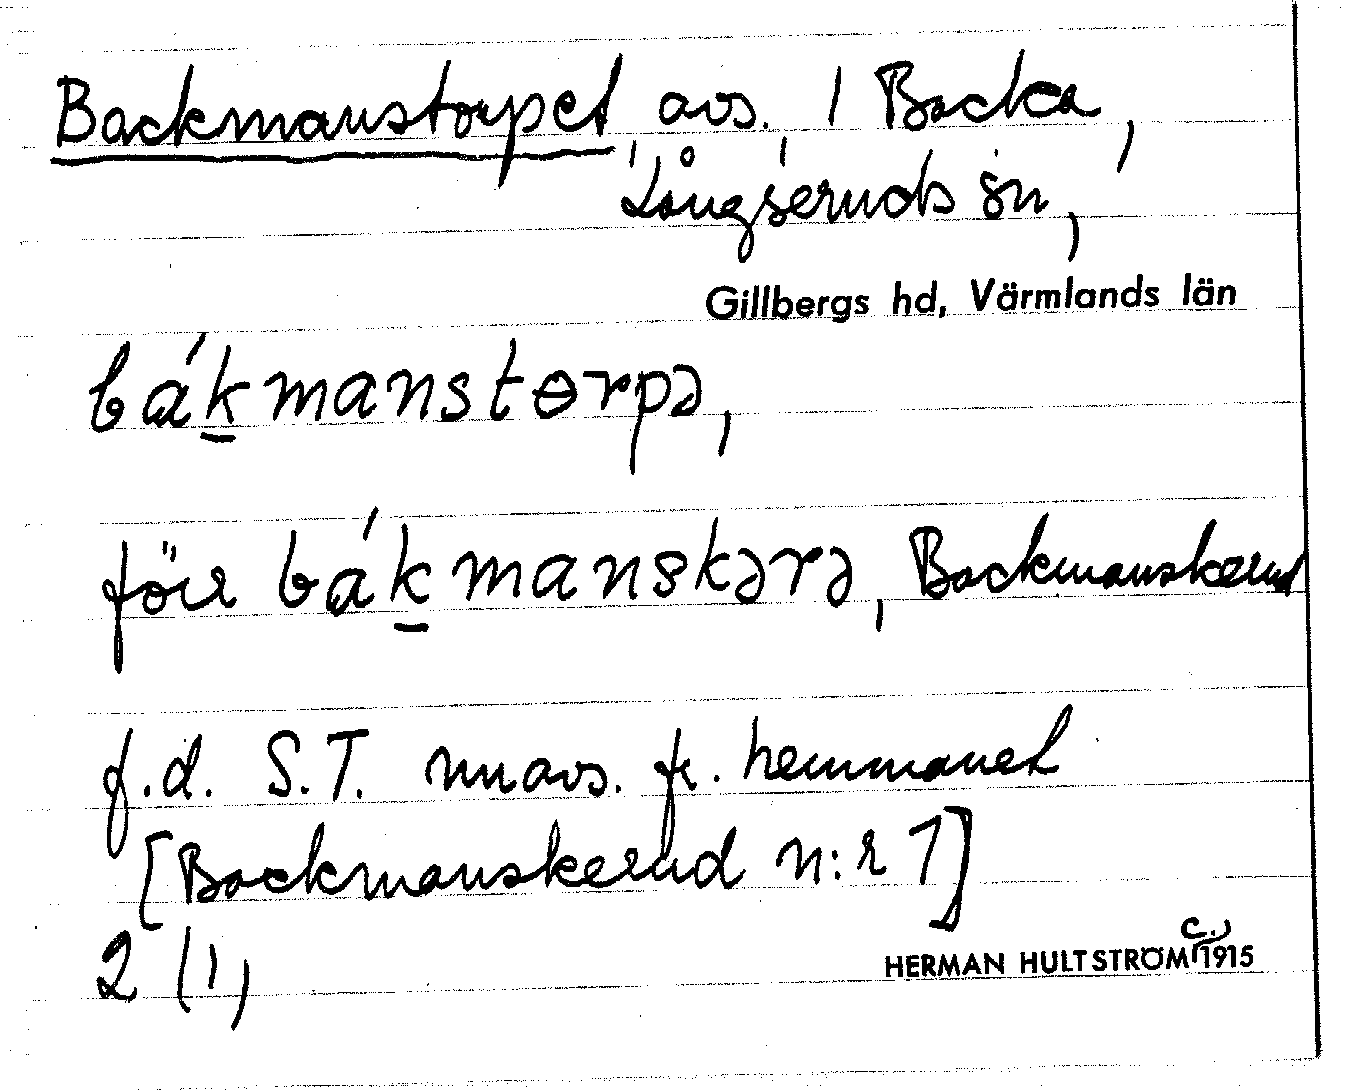 Backmanstorpet avs. 1 Backa,
Långseruds sn,
Gillbergs hd, Värmlands län
bákmanstɵrpə,
för bákmanskərə, Backmanskerud
f.d. S.T. nu avs. fr. hemmanet
[Backmanskerud n:r 1]
2 (1)
HERMAN HULTSTRÖM c. 1915